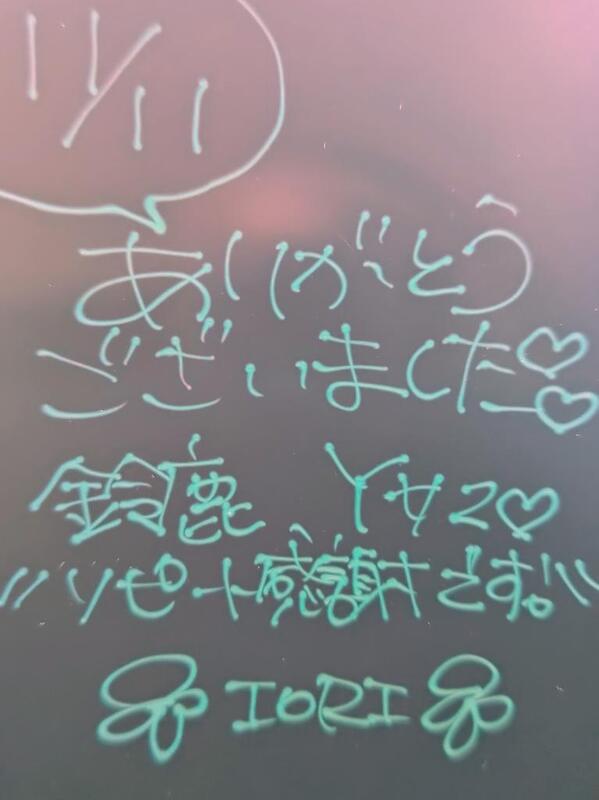 11/11
ありがとう
ございました♡♡
鈴鹿 Yサマ♡
リピート感謝です。
IORI